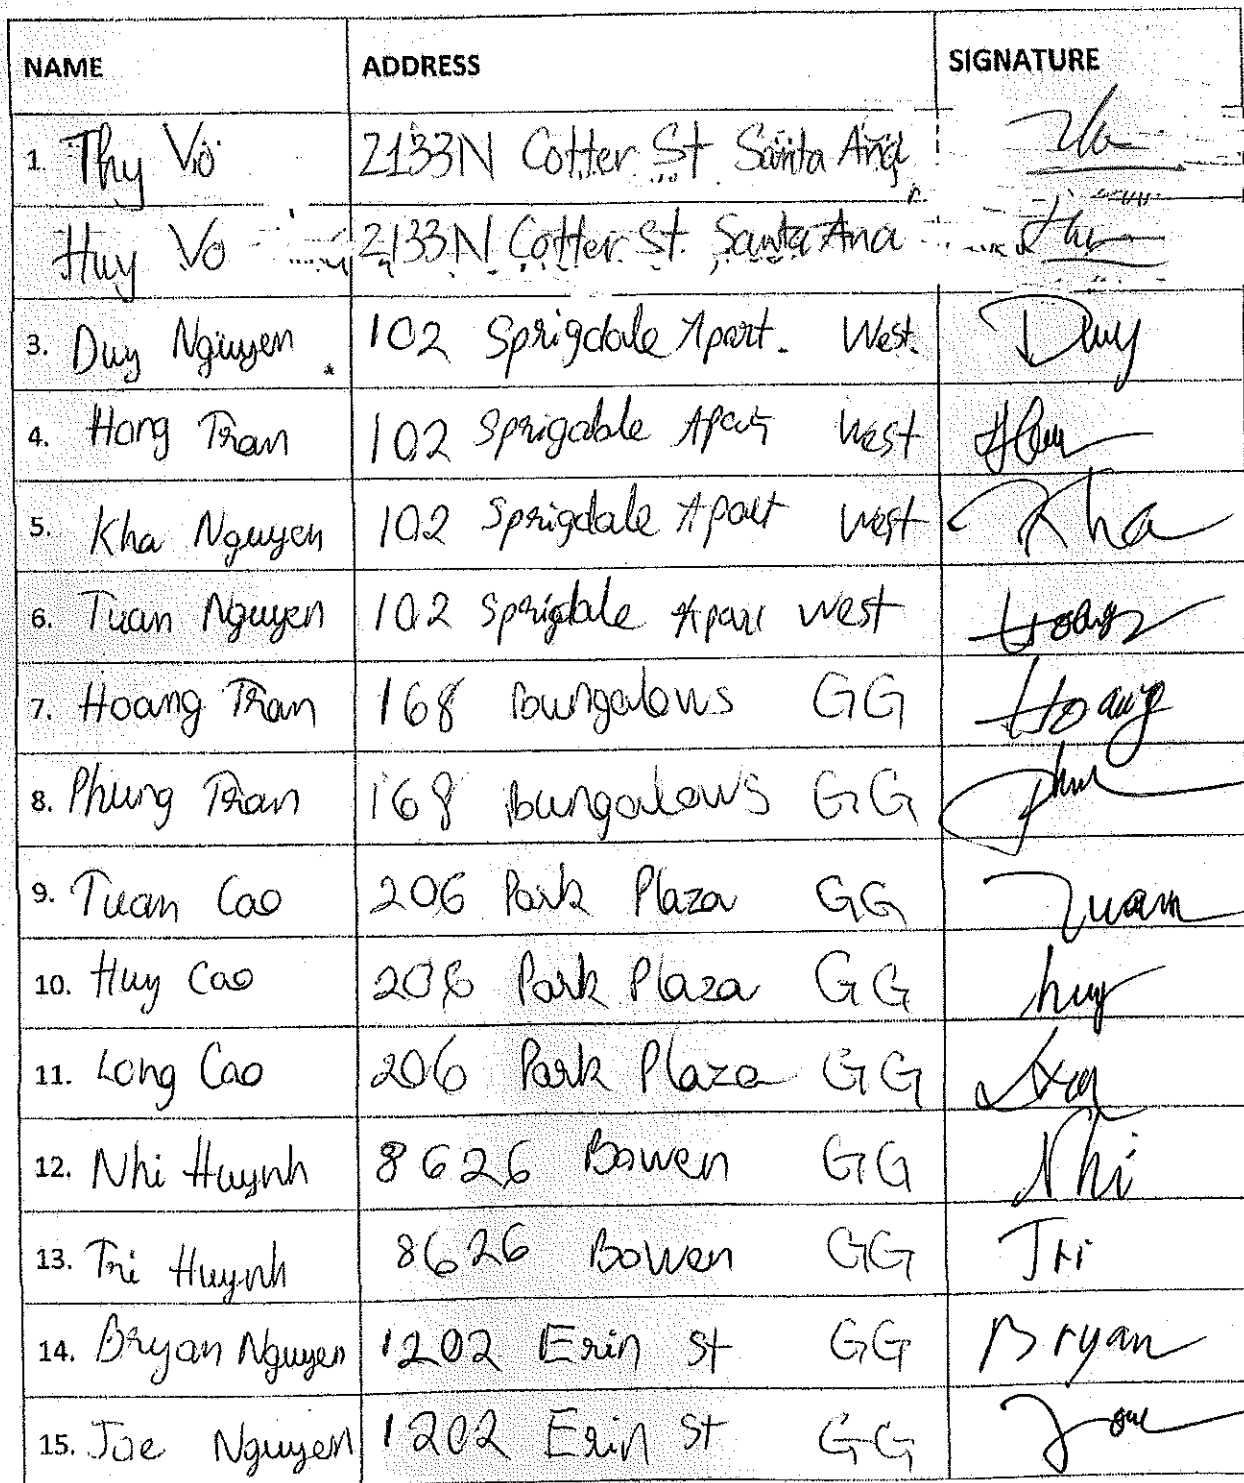 NAME ADDRESS SIGNATURE
1. Thy Vo 2133N Cotter St Santa Ana
Huy Vo 2133N Cotter St. Santa Ana
3. Duy Nguyen 102 Sprigdale Apart. West. Duy
4. Hong Tran 102 Sprigdale Apart West
5. Kha Nguyen 102 Sprigdale Apart West Kha
6. Tuan Nguyen 102 Sprigdale Apart West
7. Hoang Tran 168 Bungalows GG Hoang
8. Phung Tran 168 Bungalows GG
9. Tuan Cao 206 Park Plaza GG Tuan
10. Huy Cao 206 Park Plaza GG huy
11. Long Cao 206 Park Plaza GG
12. Nhi Huynh 8626 Bowen GG Nhi
13. Tri Huynh 8626 Bowen GG Tri
14. Bryan Nguyen 1202 Erin St GG Bryan
15. Joe Nguyen 1202 Erin St GG